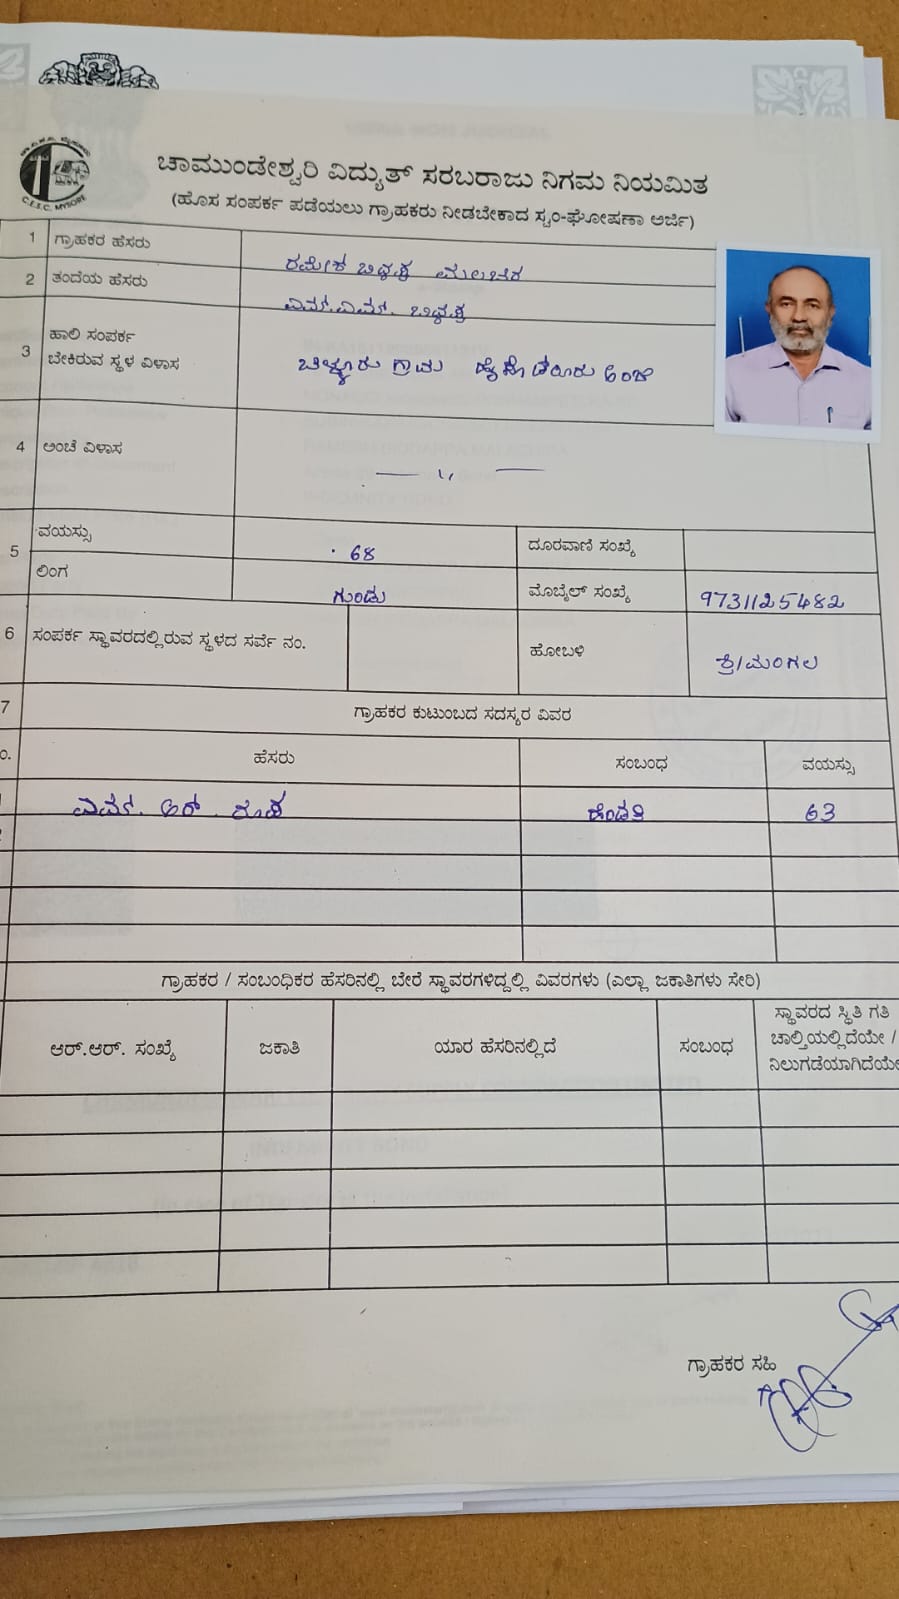 C.E.S.C. MYSORE
ಚಾಮುಂಡೇಶ್ವರಿ ವಿದ್ಯುತ್ ಸರಬರಾಜು ನಿಗಮ ನಿಯಮಿತ
(ಹೊಸ ಸಂಪರ್ಕ ಪಡೆಯಲು ಗ್ರಾಹಕರು ನೀಡಬೇಕಾದ ಸ್ವಂ-ಘೋಷಣಾ ಅರ್ಜಿ)
1 ಗ್ರಾಹಕರ ಹೆಸರು ರಮೇಶ ಬಿದ್ದಪ್ಪ ಮಲಚೀರ
2 ತಂದೆಯ ಹೆಸರು ಎಮ್.ಎಮ್. ಬಿದ್ದಪ್ಪ
3 ಹಾಲಿ ಸಂಪರ್ಕ
ಬೇಕಿರುವ ಸ್ಥಳ ವಿಳಾಸ ಗ್ರಾಮ ಅಂಚೆ
4 ಅಂಚೆ ವಿಳಾಸ — 〃 —
5 ವಯಸ್ಸು 68 ದೂರವಾಣಿ ಸಂಖ್ಯೆ
ಲಿಂಗ ಗಂಡು ಮೊಬೈಲ್ ಸಂಖ್ಯೆ 9731125482
6 ಸಂಪರ್ಕ ಸ್ಥಾವರದಲ್ಲಿರುವ ಸ್ಥಳದ ಸರ್ವೆ ನಂ. ಹೋಬಳಿ ಶ್ರೀಮಂಗಲ
7 ಗ್ರಾಹಕರ ಕುಟುಂಬದ ಸದಸ್ಯರ ವಿವರ
ಹೆಸರು ಸಂಬಂಧ ವಯಸ್ಸು
ಎಮ್. ಆರ್. ರೂಪ ಹೆಂಡತಿ 63
ಗ್ರಾಹಕರ / ಸಂಬಂಧಿಕರ ಹೆಸರಿನಲ್ಲಿ ಬೇರೆ ಸ್ಥಾವರಗಳಿದ್ದಲ್ಲಿ ವಿವರಗಳು (ಎಲ್ಲಾ ಜಕಾತಿಗಳು ಸೇರಿ)
ಆರ್.ಆರ್. ಸಂಖ್ಯೆ ಜಕಾತಿ ಯಾರ ಹೆಸರಿನಲ್ಲಿದೆ ಸಂಬಂಧ ಸ್ಥಾವರದ ಸ್ಥಿತಿ ಗತಿ
ಚಾಲ್ತಿಯಲ್ಲಿದೆಯೇ /
ನಿಲುಗಡೆಯಾಗಿದೆಯೇ
ಗ್ರಾಹಕರ ಸಹಿ